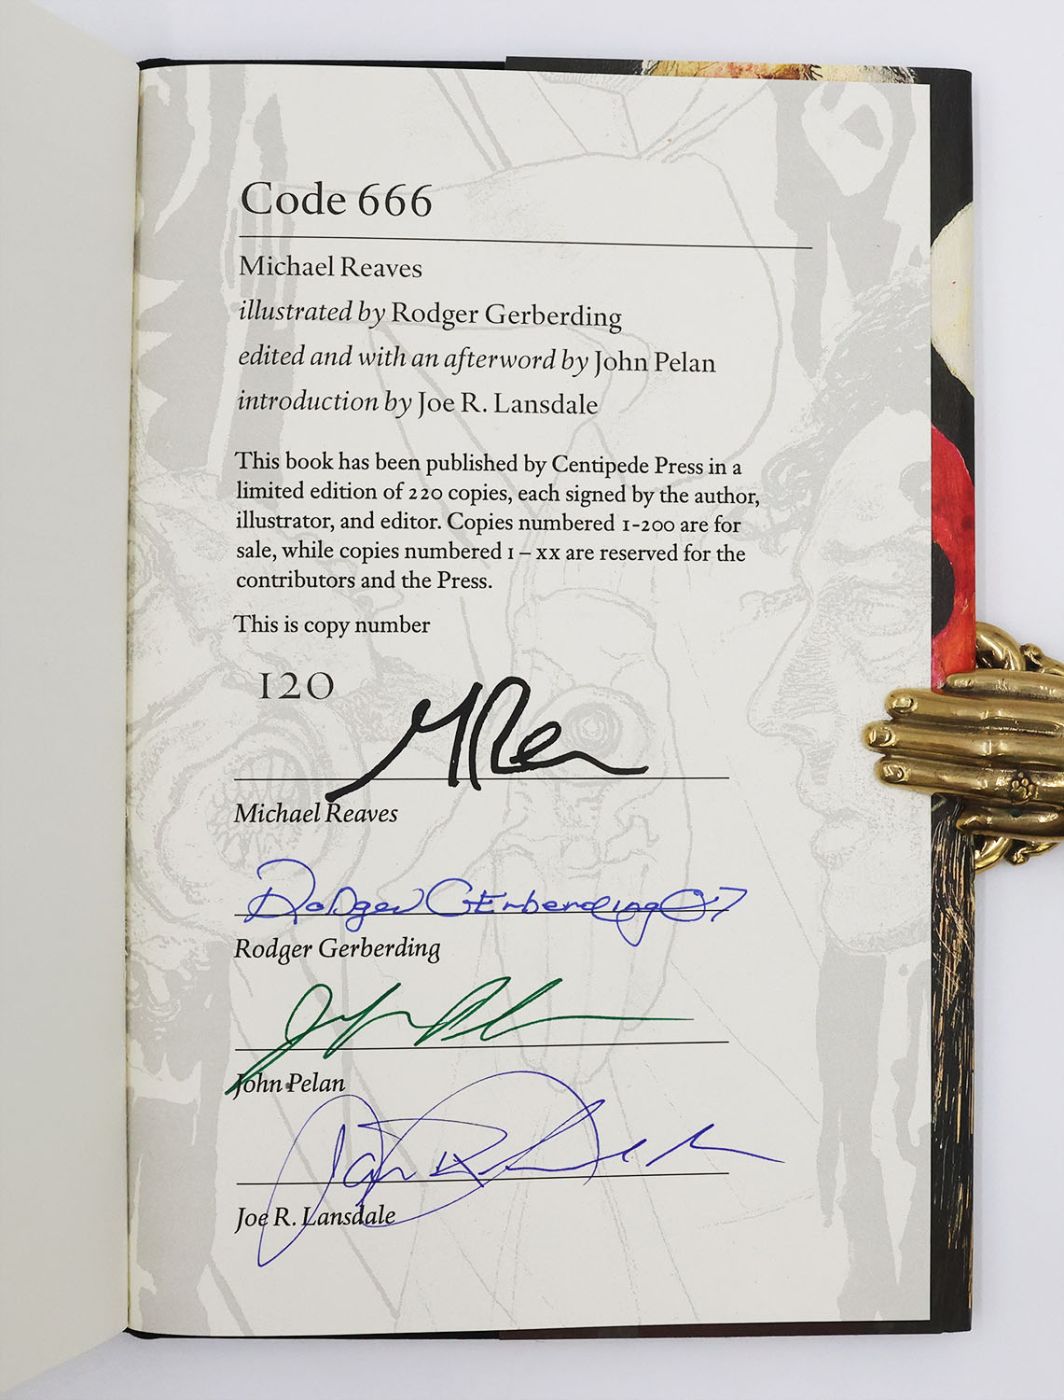 Code 666
Michael Reaves
illustrated by Rodger Gerberding
edited and with an afterword by John Pelan
introduction by Joe R. Lansdale
This book has been published by Centipede Press in a
limited edition of 220 copies, each signed by the author,
illustrator, and editor. Copies numbered 1-200 are for
sale, while copies numbered I – XX are reserved for the
contributors and the Press.
This is copy number
120
Michael Reaves
Rodger Gerberding 07
Rodger Gerberding
John Pelan
Joe R. Lansdale